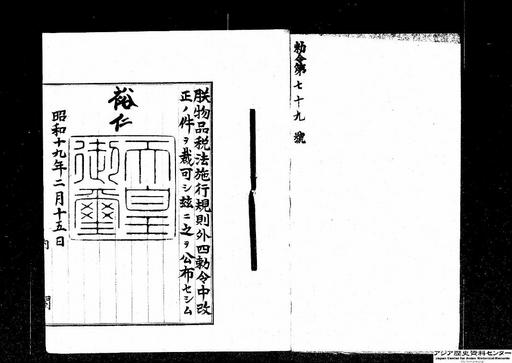 勅令第七十九號
朕物品税法施行規則外四勅令中改
正ノ件ヲ裁可シ玆ニ之ヲ公布セシム
裕仁
天皇
御璽
昭和十九年二月十五日
内閣
アジア歴史資料センター
Japan Center for Asian Historical Records